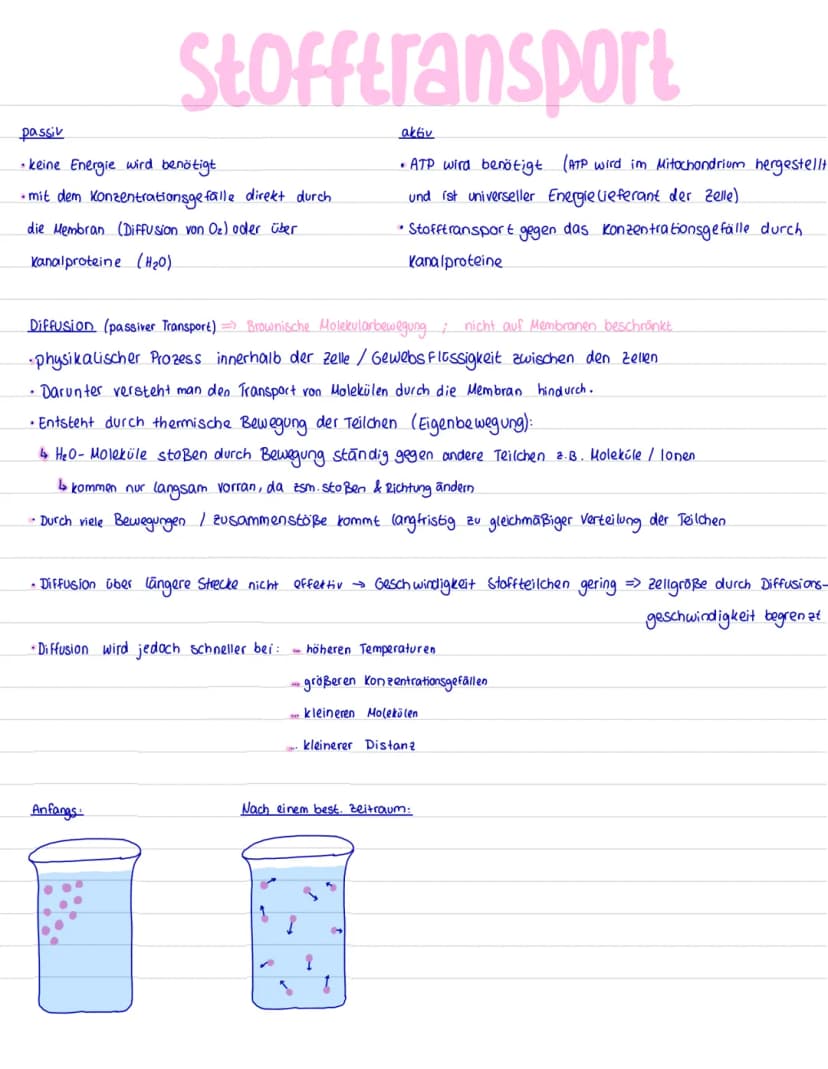 Stofftransport
passiv
• keine Energie wird benötigt
• mit dem Konzentrationsgefälle direkt durch
die Membran (Diffusion von O₂) oder über
Kanalproteine (H₂O)
aktiv
• ATP wird benötigt (ATP wird im Mitochondrium hergestellt
und ist universeller Energielieferant der Zelle)
• Stofftransport gegen das Konzentrationsgefälle durch
Kanalproteine
Diffusion (passiver Transport) => Brownische Molekularbewegung ; nicht auf Membranen beschränkt
• physikalischer Prozess innerhalb der Zelle / Gewebsflüssigkeit zwischen den Zellen
• Darunter versteht man den Transport von Molekülen durch die Membran hindurch.
• Entsteht durch thermische Bewegung der Teilchen (Eigenbewegung):
↳ H₂O- Moleküle stoßen durch Bewegung ständig gegen andere Teilchen z.B. Moleküle / Ionen
↳ kommen nur langsam vorran, da zsm. stoßen & Richtung ändern
• Durch viele Bewegungen / zusammenstöße kommt langfristig zu gleichmäßiger Verteilung der Teilchen
• Diffusion über längere Strecke nicht effektiv → Geschwindigkeit Stoffteilchen gering => Zellgröße durch Diffusions-
geschwindigkeit begrenzt
• Diffusion wird jedoch schneller bei: - höheren Temperaturen
- größeren Konzentrationsgefällen
- kleineren Molekülen
- kleinerer Distanz
Anfangs:
Nach einem best. Zeitraum: